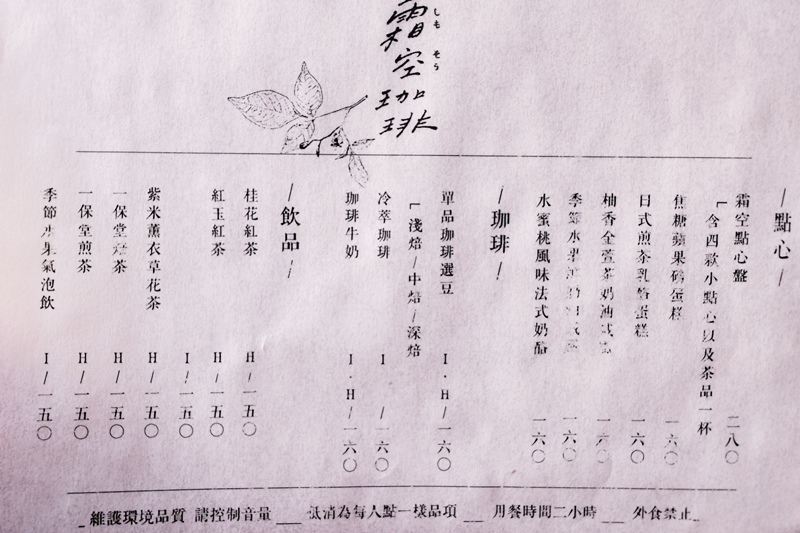 霜空珈琲
しもそら
/點心/
霜空點心盤 二八〇
「含四款小點心以及茶品一杯
焦糖蘋果磅蛋糕 一六〇
日式煎茶乳酪蛋糕 一六〇
柚香金萱茶奶油 一六〇
季節水果 一六〇
水蜜桃風味法式奶酪 一六〇
/珈琲/
單品珈琲選豆 I·H/一六〇
「淺焙/中焙/深焙
冷萃珈琲 I /一六〇
珈琲牛奶 I·H/一六〇
/飲品/
桂花紅茶 H/一五〇
紅玉紅茶 H/一五〇
I/一五〇
紫米薰衣草花茶 H/一五〇
一保堂焙茶 H/一五〇
一保堂煎茶 H/一五〇
季節水果氣泡飲 I/一五〇
_維護環境品質 請控制音量 __ 低消為每人點一樣品項 __ 用餐時間二小時 __ 外食禁止_